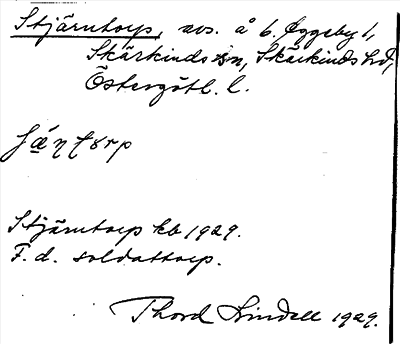 Stjärntorp, avs. å b. Äggeby 1,
Skärkinds sn, Skärkinds hd,
Östergötl. l.
Stjärntorp kb 1929.
F. d. soldattorp.
Thord Lindell 1929.